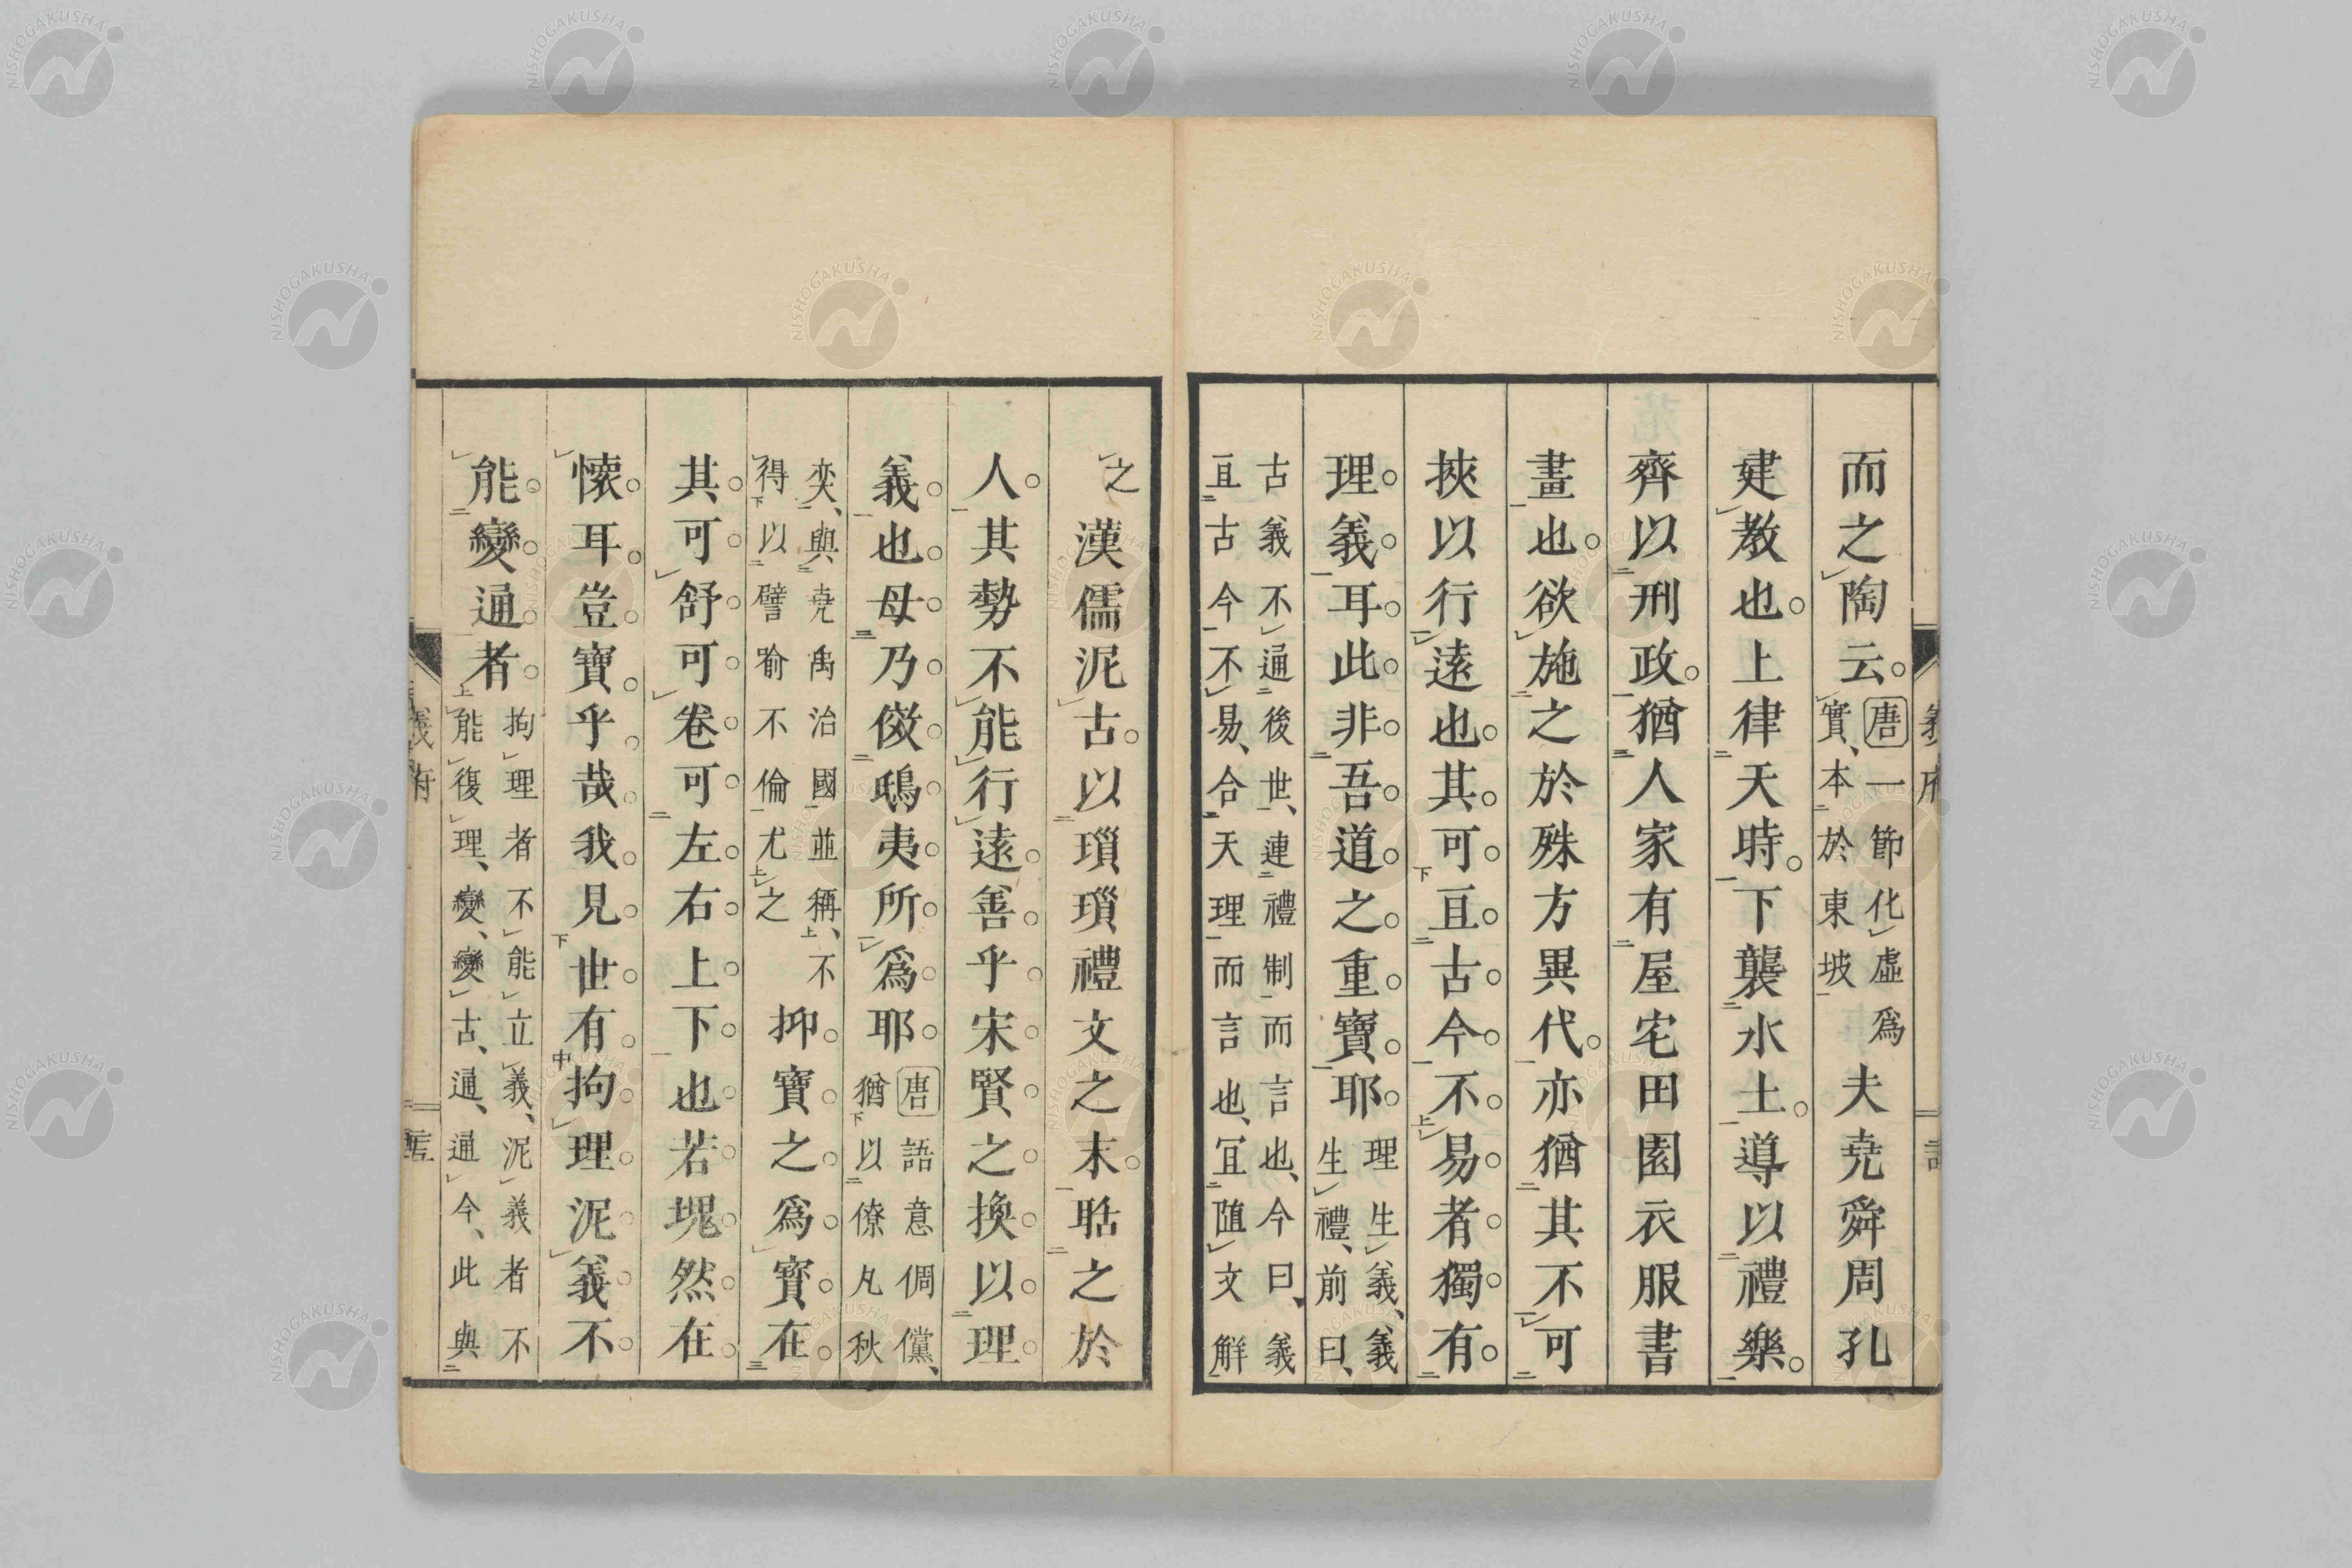 而之陶云。唐一節化虛爲
實、本於東坡
夫堯舜周孔
建教也。上律天時。下襲水土。導以禮樂。
齊以刑政。猶人家有屋宅田園衣服書
畫也。欲施之於殊方異代。亦猶其不可
挾以行遠也。其可亘古今不易者。獨有
理義耳。此非吾道之重寶耶。理生義、義
生禮、前曰、
古義不通後世、連禮制而言也、今曰、義
亘古今不易、合天理而言也、宜隨文解
之
漢儒泥古。以瑣瑣禮文之末。聒之於
人。其勢不能行遠。善乎。宋賢之換以理
義也。毋乃傚鴟夷所爲耶。唐語意倜儻、
猶以僚丸秋
奕、與堯禹治國並稱、不
得以譬喻不倫尤之
抑寶之爲寶。在
其可舒可卷可左右上下也。若塊然在
懷耳。豈寶乎哉。我見世有拘理泥義不
能變通者。拘理者不能立義、泥義者不
能復理、變、變古、通、通今、此與
義府